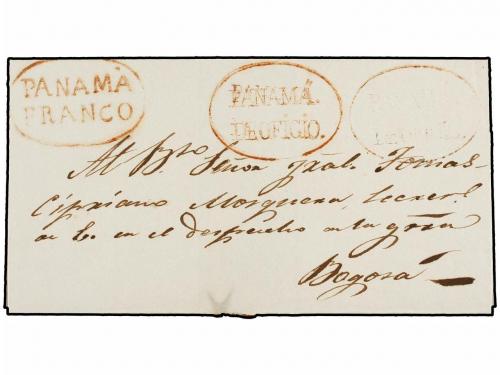 PANAMÁ
FRANCO
PANAMÁ.
DE OFICIO.
Al Sro Señor Gral. Tomas
Cipriano Mosquera, Secret.
de E. en el despacho de la grra
Bogotá